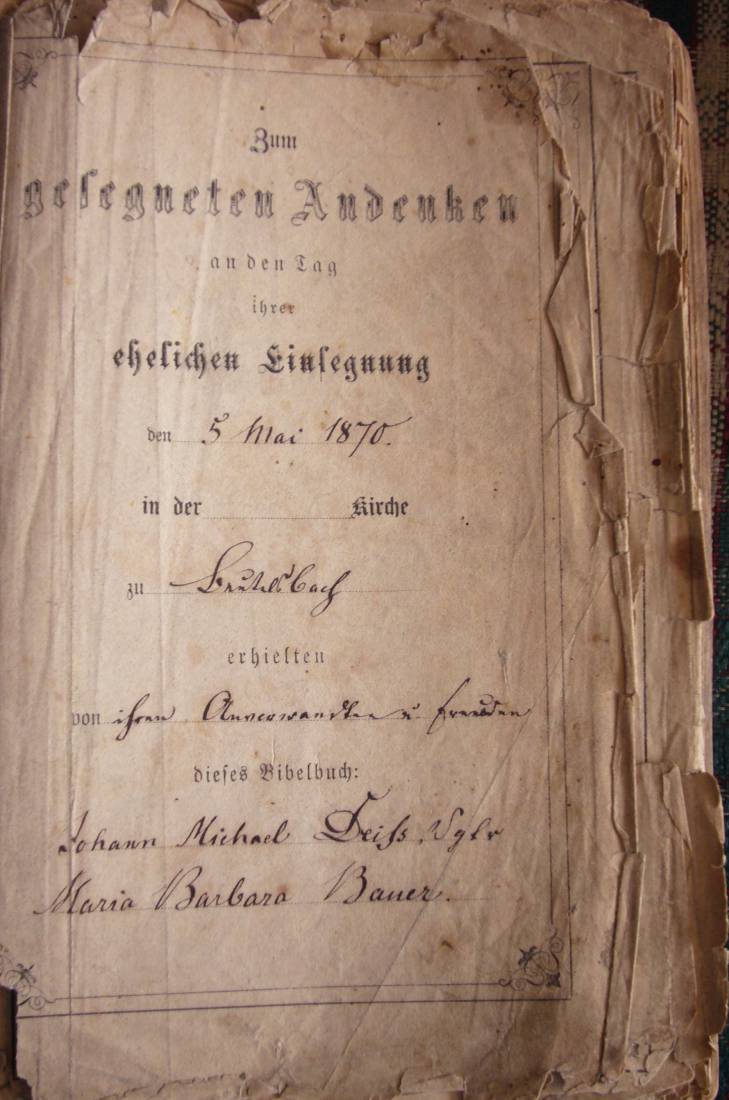 Zum
gesegneten Andenken
an den Tag
ihrer
ehelichen Einsegnung
den 5 Mai 1870.
in der Kirche
zu Beutelsbach
erhielten
von ihren Anverwandten u. Freunden
dieses Bibelbuch:
Johann Michael Deiss
Maria Barbara Bauer.